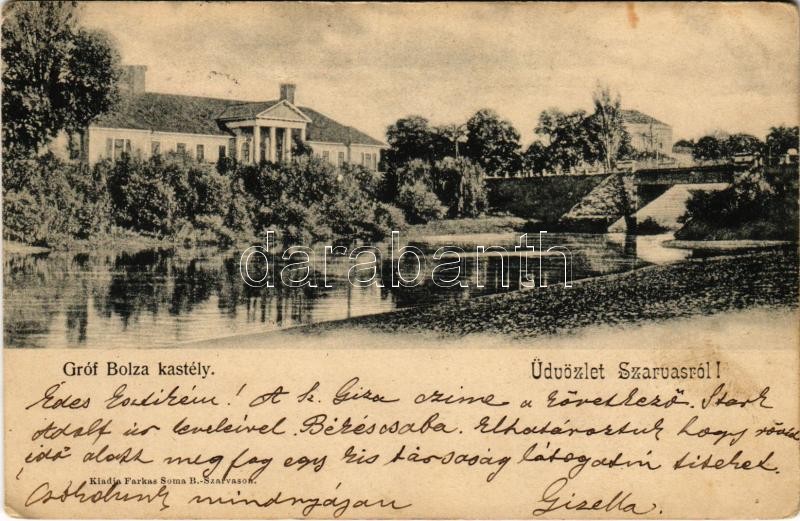 darabanth
Gróf Bolza kastély.
Üdvözlet Szarvasról!
Édes Esztikém! A k. Giza czime a következő. Stark
Adolf úr leveleivel. Békéscsaba. Elhatároztuk hogy rövid
idő alatt meg fog egy kis társaság látogatni titeket.
Kiadja Farkas Soma B.-Szarvason.
Csókolunk mindnyájan Gizella.